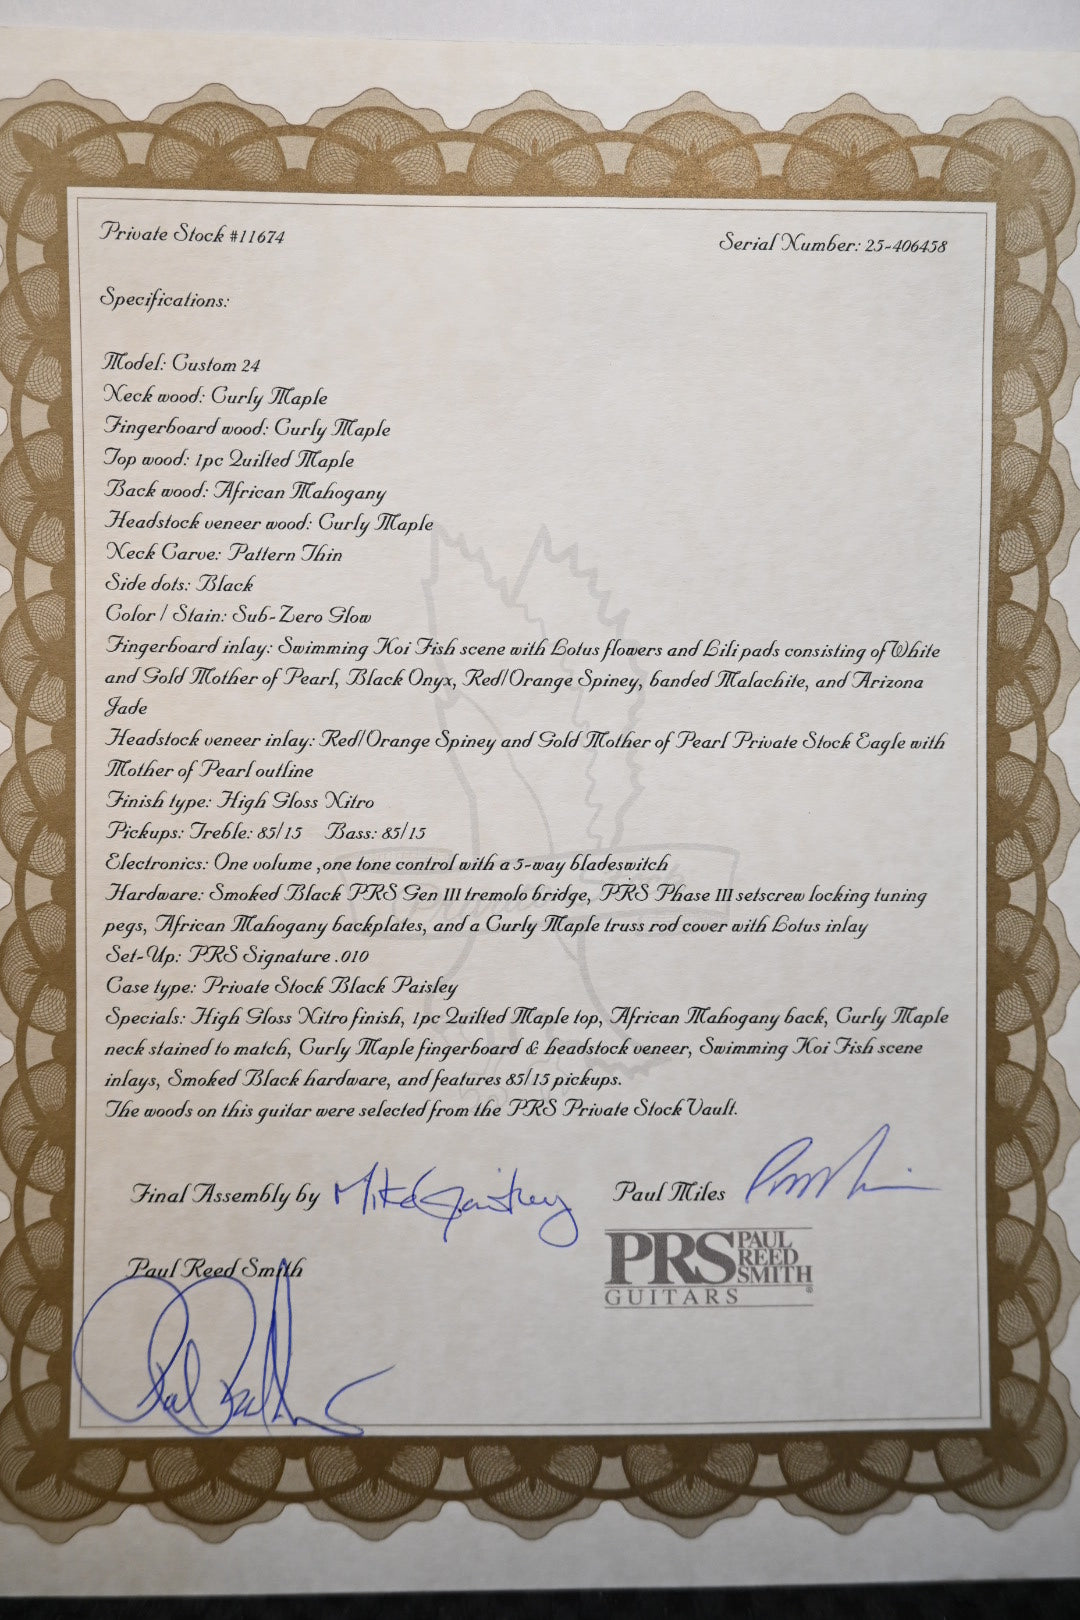 Private Stock #11674
Serial Number: 25-406458
Specifications:
Model: Custom 24
Neck wood: Curly Maple
Fingerboard wood: Curly Maple
Top wood: 1pc Quilted Maple
Back wood: African Mahogany
Headstock veneer wood: Curly Maple
Neck Carve: Pattern Thin
Side dots: Black
Color / Stain: Sub-Zero Glow
Fingerboard inlay: Swimming Koi Fish scene with Lotus flowers and Lili pads consisting of White
and Gold Mother of Pearl, Black Onyx, Red/Orange Spiney, banded Malachite, and Arizona
Jade
Headstock veneer inlay: Red/Orange Spiney and Gold Mother of Pearl Private Stock Eagle with
Mother of Pearl outline
Finish type: High Gloss Nitro
Pickups: Treble: 85/15 Bass: 85/15
Electronics: One volume ,one tone control with a 5-way bladeswitch
Hardware: Smoked Black PRS Gen III tremolo bridge, PRS Phase III setscrew locking tuning
pegs, African Mahogany backplates, and a Curly Maple truss rod cover with Lotus inlay
Set-Up: PRS Signature .010
Case type: Private Stock Black Paisley
Specials: High Gloss Nitro finish, 1pc Quilted Maple top, African Mahogany back, Curly Maple
neck stained to match, Curly Maple fingerboard & headstock veneer, Swimming Koi Fish scene
inlays, Smoked Black hardware, and features 85/15 pickups.
The woods on this guitar were selected from the PRS Private Stock Vault.
Final Assembly by
Paul Miles
PRS PAUL REED SMITH®
GUITARS
Paul Reed Smith